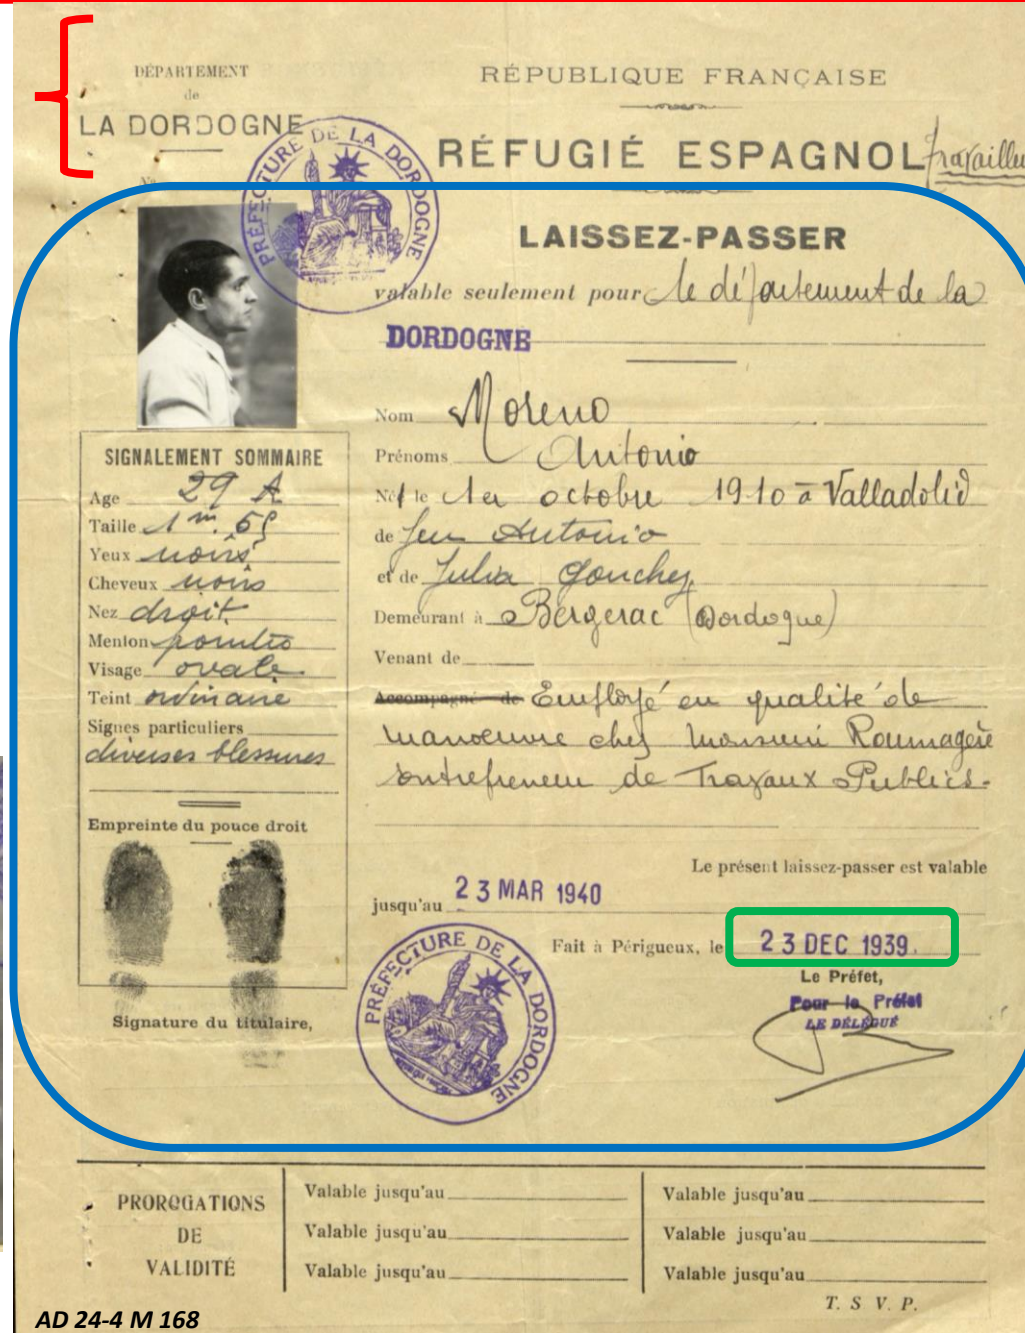 DÉPARTEMENT
de
LA DORDOGNE
RÉPUBLIQUE FRANÇAISE
RÉFUGIÉ ESPAGNOL
PRÉFECTURE DE LA DORDOGNE
LAISSEZ-PASSER
valable seulement pour le département de la
DORDOGNE
Nom Moreno
Prénoms Antonio
Né le 1er octobre 1910 à Valladolid
de feu Antonio
et de Julia
Demeurant à Bergerac (Dordogne)
Venant de
Accompagné de Employé en qualité de
manoeuvre chez Monsieur Roumagère
entrepreneur de Travaux Publics.
SIGNALEMENT SOMMAIRE
Age 29 A
Taille 1 m. 65
Yeux noirs
Cheveux noirs
Nez droit
Menton pointu
Visage ovale
Teint ordinaire
Signes particuliers
diverses blessures
Empreinte du pouce droit
Signature du titulaire,
Le présent laissez-passer est valable
jusqu'au 23 MAR 1940
Fait à Périgueux, le 23 DEC 1939.
Le Préfet,
Pour le Préfet
LE DÉLÉGUÉ
PRÉFECTURE DE LA DORDOGNE
PROROGATIONS
DE
VALIDITÉ
Valable jusqu'au
Valable jusqu'au
Valable jusqu'au
Valable jusqu'au
Valable jusqu'au
Valable jusqu'au
T. S. V. P.
AD 24-4 M 168